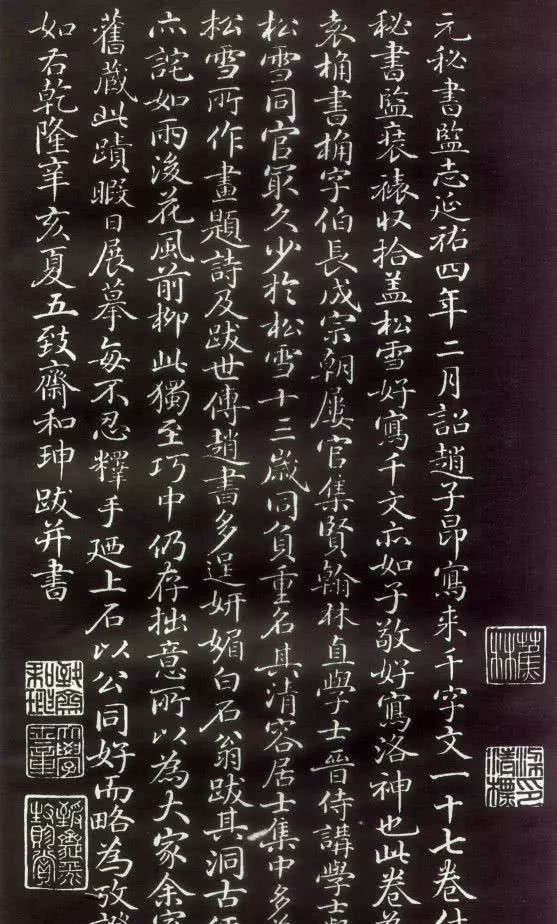 元秘書監志延祐四年二月詔趙子昂寫來千字文一十七卷付
秘書監裝褾収拾盖松雪好寫千文亦如子敬好寫洛神也此卷
袁桷書桷字伯長成宗朝屢官集賢翰林直學士晉侍講學士
松雪同官冣久少於松雪十三歲同負重名其清容居士集中多
松雪所作畫題詩及跋世傳趙書多逞妍媚白石翁跋其洞古經
亦詫如雨後花風前柳此獨至巧中仍存拙意所以為大家余家
舊藏此蹟暇日展摹每不忍釋手廼上石以公同好而略為攷證
如右乾隆辛亥夏五致齋和珅跋并書
蕉林